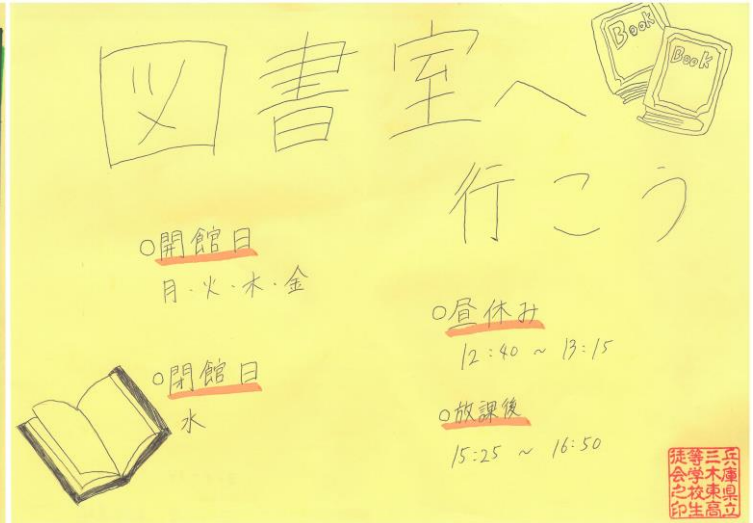 図書室へ
行こう
Book
Book
○開館日
月・火・木・金
○閉館日
水
○昼休み
12:40 ~ 13:15
○放課後
15:25 ~ 16:50
兵庫県立
三木東高
等学校生
徒会之印